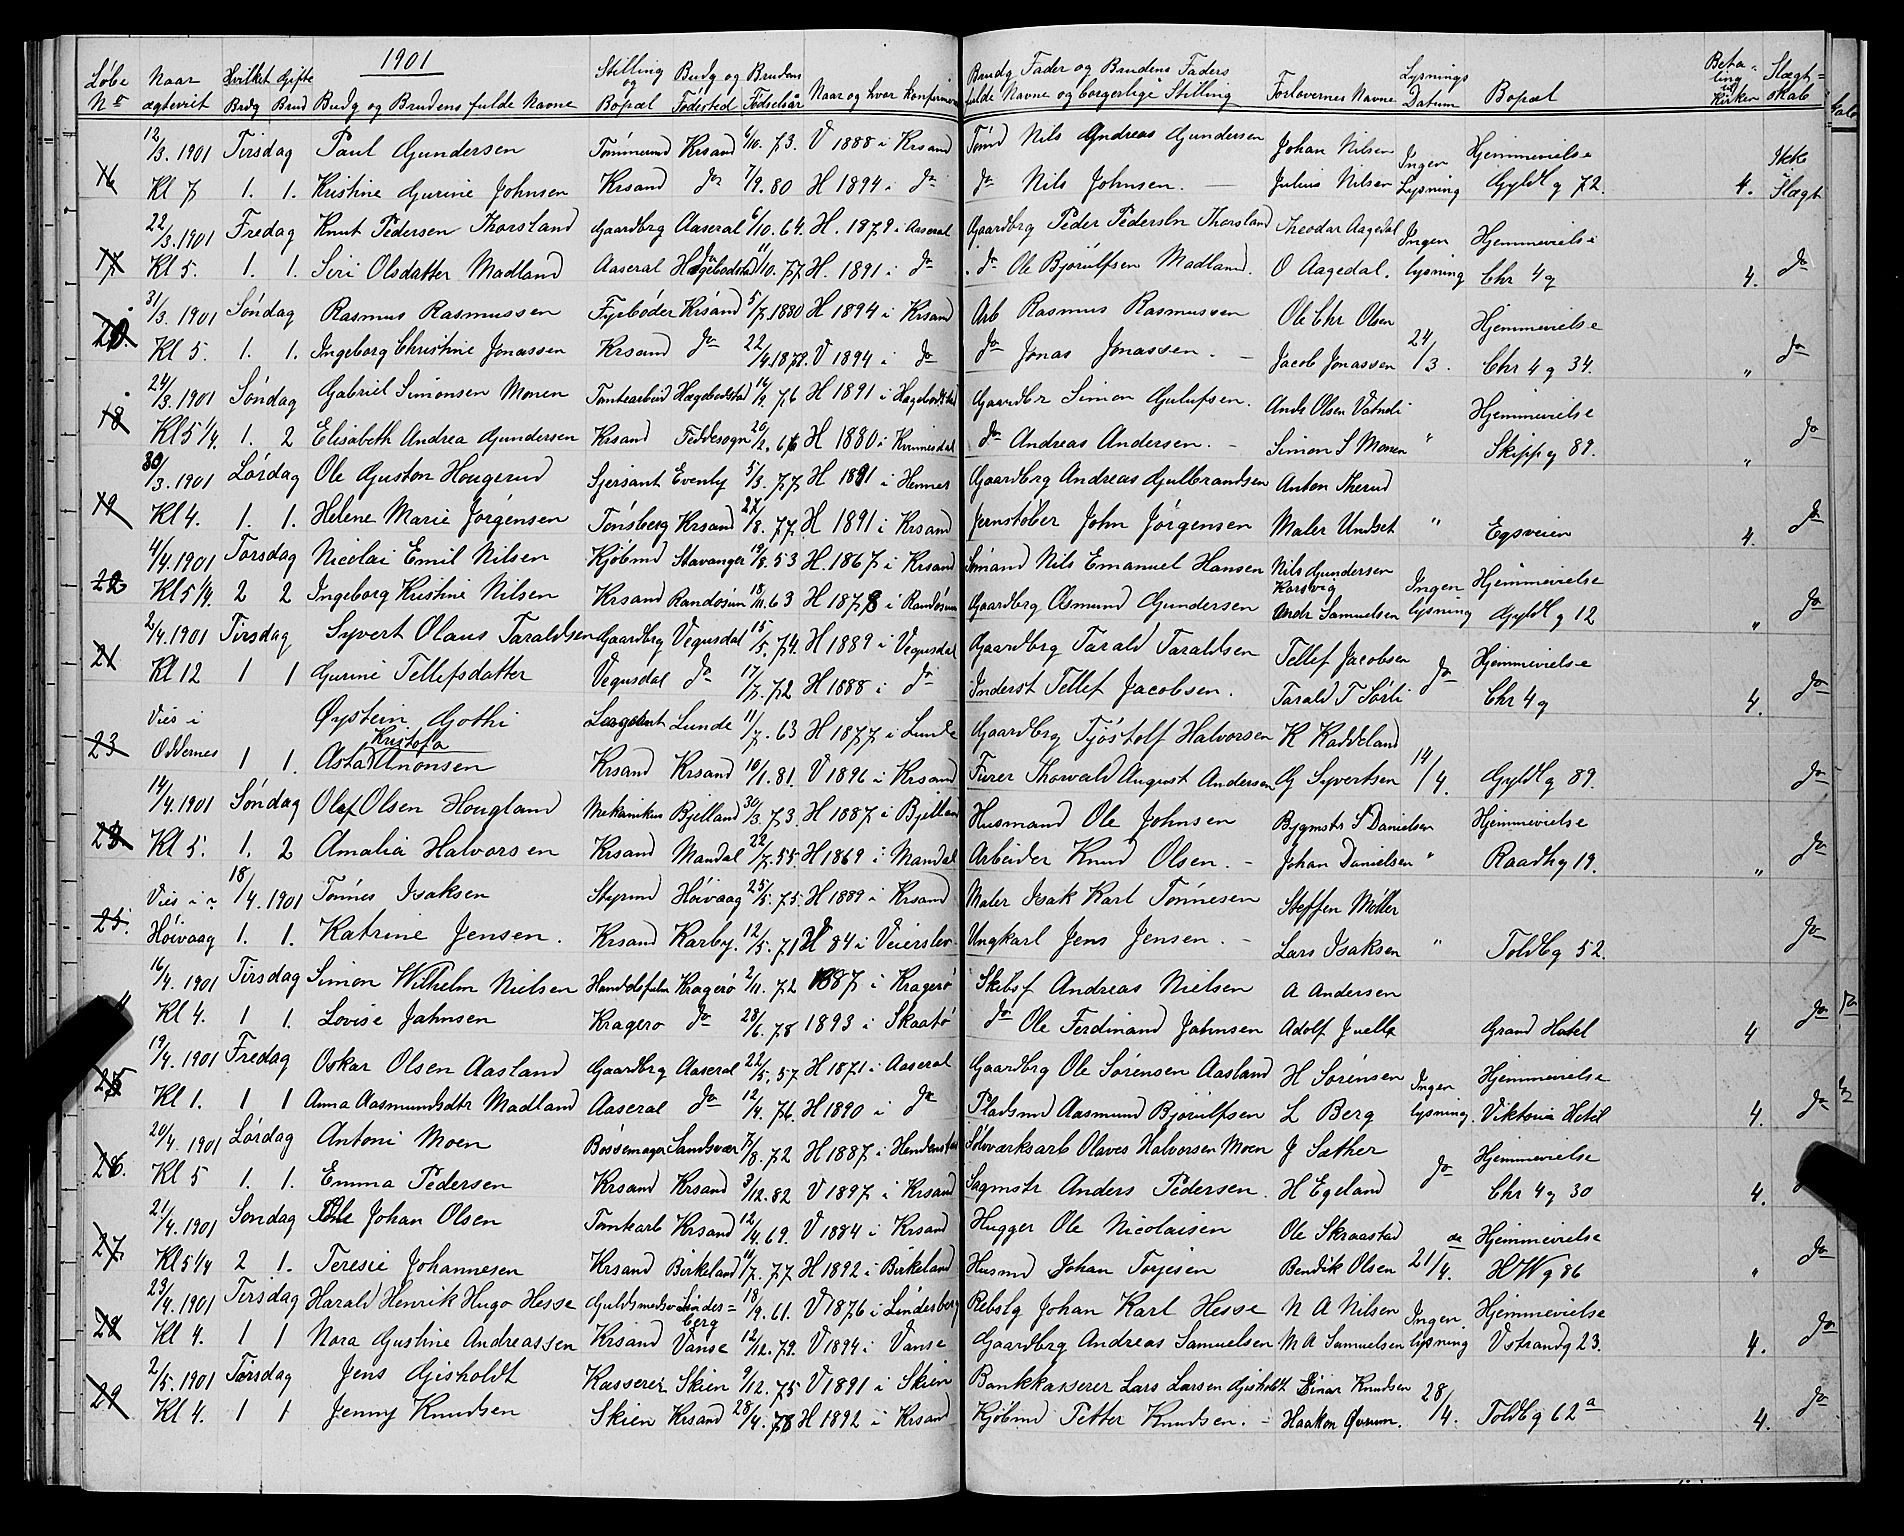 1901
Løbe Naar Hvilket Gifte Stilling Brudg og Brudens Brudg Fader og Brudens Faders Lysnings Beta- Slægt-
No ægteviet Brdg Brud Brudg og Brudens fulde Navne og Bopæl Fødested Fødselsår Naar og hvor konfirmer fulde Navne og borgerlige Stilling Forlovernes Navne Datum Bopæl ling kirken skab
12/3. 1901 Tirsdag Paul Gundersen Tømmermd Krsand 6/10. 73. V 1888 i Krsand Tømd Nils Andreas Gundersen Johan Nilsen Ingen Hjemmevielse Ikke
16 Kl 7 1. 1. Kristine Gurine Johnsen Krsand do 7/9. 80 H 1894 i do do Nils Johnsen. Julius Nilsen Lysning Gyldlg 72. 4. Slægt
22/3. 1901 Fredag Knut Pedersen Thorsland Gaardbrg Aaseral 6/10. 64. H. 1879 i Aaseral Gaardbrg Peder Pedersen Thorsland Theodor Aagedal Ingen Hjemmevielse
17 Kl 5. 1. 1. Siri Olsdatter Madland Aaseral Hægebodstad 11/10. 77 H. 1891 i do do Ole Bjørulfsen Madland. O Aagedal. lysning Chr 4 g 4. do
31/3. 1901 Søndag Rasmus Rasmussen Fyrbøder Krsand 5/7. 1880 H 1894 i Krsand Arb Rasmus Rasmussen Ole Chr Olsen Hjemmevielse
20. Kl 5. 1. 1. Ingeborg Christine Jonassen Krsand do 22/4 1878. V 1894 i do do Jonas Jonassen. – Jacob Jonassen 24/3. Chr 4 g 34. " do
24/3. 1901 Søndag Gabriel Simonsen Monen Tomtearbeid Hægebodstad 16/9. 76 H 1891 i Hægebodstad Gaardbr Simon Gulufsen. Ands Olsen Vatneli Hjemmevielse
18 Kl 5 1/4. 1. 2 Elisabeth Andrea Gundersen Krsand Feddesogn 20/2. 66 H 1880 i Kvinesdal do Andreas Andersen. – Simon S Monen " Skippg 89. " do
30/3. 1901 Lørdag Ole Guston Hougerud Sjersant Evenby 5/3. 77 H 1891 i Hemnes Gaardbrg Andreas Gulbrandsen Anton Therud
19 Kl 4. 1. 1. Helene Marie Jørgensen Tønsberg Krsand 27/8. 77. H 1891 i Krsand Jernstøber John Jørgensen Maler Undset " Egsveien 4. do
4/4. 1901 Torsdag Nicolai Emil Nilsen Kjøbmd Stavanger 19/8. 53 H. 1867 i Krsand Sømand Nils Emanuel Hansen Nils Gundersen Korsvig Ingen Hjemmevielse
22 Kl 5 1/4. 2 2 Ingeborg Kristine Nilsen Krsand Randøsun 18/11. 63 H 1878 i Randøsun Gaardbrg Osmund Gundersen Andr Samuelsen lysning Gyldlg 12 " do
2/4. 1901 Tirsdag Syvert Olaus Taraldsen Gaardbrg Vegusdal 15/5. 74. H 1889 i Vegusdal Gaardbrg Tarald Taraldsen Tellef Jacobsen do Hjemmevielse
21 Kl 12 1 1 Gurine Tellefsdatter Vegusdal do 17/7. 72 H 1888 i do Inderst Tellef Jacobsen. Tarald T Sørli Chr 4 g 4. do
Vies i Øystein Gothi Sargeant Lunde 11/7. 63 H 1877 i Lunde Gaardbrg Tjøstolf Halvorsen K Kaddeland
23 Oddernes 1 1. Asta Kristofa Anonsen Krsand Krsand 10/1. 81. V 1896 i Krsand Furer Thorvald August Andersen G Syvertsen 14/4. Gyldlg 89. do
14/4. 1901 Søndag Olaf Olsen Hougland Mekanikus Bjelland 30/3. 73. H 1887 i Bjelland Husmand Ole Johnsen Bygmstr S Danielsen Hjemmevielse
Kl 5. 1. 2 Amalia Halvorsen Krsand Mandal 22/7. 55. H 1869 i Mandal Arbeider Knud Olsen. – Johan Danielsen " Raadhg 19. " do
Vies i 18/4. 1901 Tønnes Isaksen Styrmd Høivaag 25/5. 75. H 1889 i Krsand Maler Isak Karl Tønnesen Steffen Møller
25. Høivaag 1. 1. Katrine Jensen. Krsand Karby. 12/5. 71 84 i Veierslev. Ungkarl Jens Jensen. – Lars Isaksen " Toldbg 52. do
16/4. 1901 Tirsdag Simon Wilhelm Nielsen Handelsfulm Kragerø 2/11. 72 1887 i Kragerø Skibsf Andreas Nielsen A Andersen
Kl 4. 1 1. Lovise Jahnsen Kragerø do 28/6. 78 1893 i Skaatø do Ole Ferdinand Jahnsen Adolf Juell Grand Hotel 4 do
19/4. 1901 Fredag Oskar Olsen Aasland Gaardbrg Aaseral 22/5. 57 H 1871 i Aaseral Gaardbrg Ole Sørensen Aasland H Sørensen Ingen Hjemmevielse
Kl 1. 1 1 Anna Aasmundsdtr Madland Aaseral do 12/4. 76. H 1890 i do Pladsmd Aasmund Bjørulfsen L Berg lysning. Viktoria Hotel 4. do
20/4. 1901 Lørdag Antoni Moen Bøssemager Sandsvær 7/8. 72 H 1887 i Sølvværksarb Olaves Halvorsen Moen J Sæther do Hjemmevielse
26. Kl 5 1. 1. Emma Pedersen Krsand Krsand 3/12. 82 V 1897 i Krsand Sagmstr Anders Pedersen. H Egeland Chr 4 g 30 4.
21/4. 1901 Søndag Ole Johan Olsen Tomtearb Krsand 12/4 69. V 1884 i Krsand Hugger Ole Nicolaisen Ole Skraastad Hjemmevielse
27 Kl 5 1/4 2 1. Teresie Johannesen Krsand Birkeland 11/7. 77 H 1892 i Birkeland Husmd Johan Torjesen Bendik Olsen 21/4. H W g 86 " do
23/4. 1901 Tirsdag Harald Henrik Hugo Hesse Guldsmedsv Lindes=berg 18/9. 61. V 1876 i Lindesberg Rebslg Johan Karl Hesse N A Nilsen Ingen Hjemmevielse
28 Kl 4. 1 1 Nora Gustine Andreassen Krsand Vanse 12/12. 79. V 1894 i Vanse Gaardbrg Andreas Samuelsen M A Samuelsen lysning V strandg 23. 4. do
2/5. 1901 Torsdag Jens Gisholdt Kasserer Skien 9/12. 75 V 1891 i Skien Bankkasserer Lars Larsen Gisholdt Einar Knudsen
29 Kl 4. 1 1 Jenny Knudsen Skien Krsand 28/4. 78 H 1892 i Krsand Kjøbmd Petter Knudsen. – Haakon Øvrum. 28/4. Toldbg 62 a 4. do